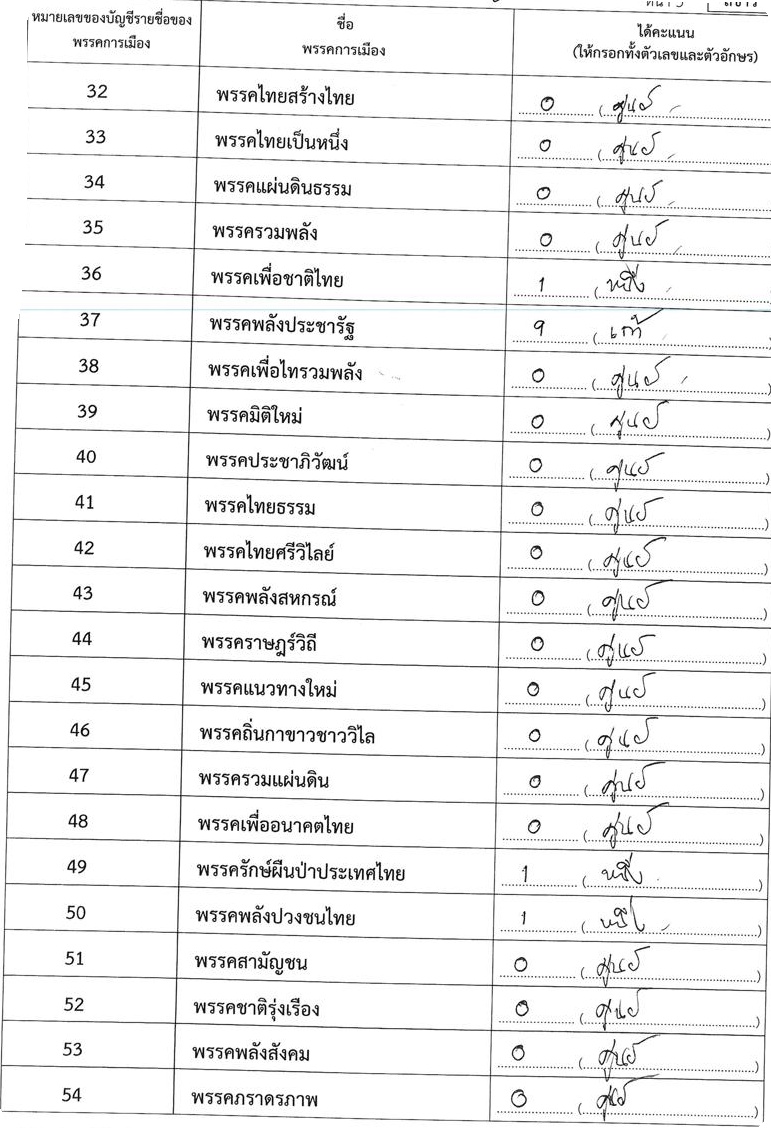 หมายเลขของบัญชีรายชื่อของ
พรรคการเมือง
ชื่อ
พรรคการเมือง
ได้คะแนน
(ให้กรอกทั้งตัวเลขและตัวอักษร)
32 พรรคไทยสร้างไทย 0 (ศูนย์
33 พรรคไทยเป็นหนึ่ง 0 (ศูนย์
34 พรรคแผ่นดินธรรม 0 (ศูนย์
35 พรรครวมพลัง 0 (ศูนย์
36 พรรคเพื่อชาติไทย 1 (หนึ่ง
37 พรรคพลังประชารัฐ 9 (เก้า
38 พรรคเพื่อไทรวมพลัง 0 (ศูนย์)
39 พรรคมิติใหม่ 0 (ศูนย์)
40 พรรคประชาภิวัฒน์ 0 (ศูนย์)
41 พรรคไทยธรรม 0 (ศูนย์)
42 พรรคไทยศรีวิไลย์ 0 (ศูนย์)
43 พรรคพลังสหกรณ์ 0 (ศูนย์)
44 พรรคราษฎร์วิถี 0 (ศูนย์)
45 พรรคแนวทางใหม่ 0 (ศูนย์)
46 พรรคถิ่นกาขาวชาววิไล 0 (ศูนย์)
47 พรรครวมแผ่นดิน 0 (ศูนย์)
48 พรรคเพื่ออนาคตไทย 0 (ศูนย์)
49 พรรครักษ์ผืนป่าประเทศไทย 1 (หนึ่ง)
50 พรรคพลังปวงชนไทย 1 (หนึ่ง)
51 พรรคสามัญชน 0 (ศูนย์)
52 พรรคชาติรุ่งเรือง 0 (ศูนย์)
53 พรรคพลังสังคม 0 (ศูนย์)
54 พรรคภราดรภาพ 0 (ศูนย์)